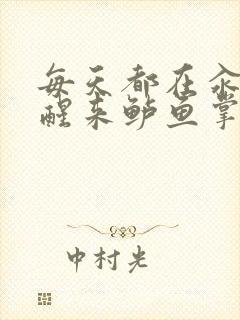 每天都在汆
醒来鲈鱼掌
中村光